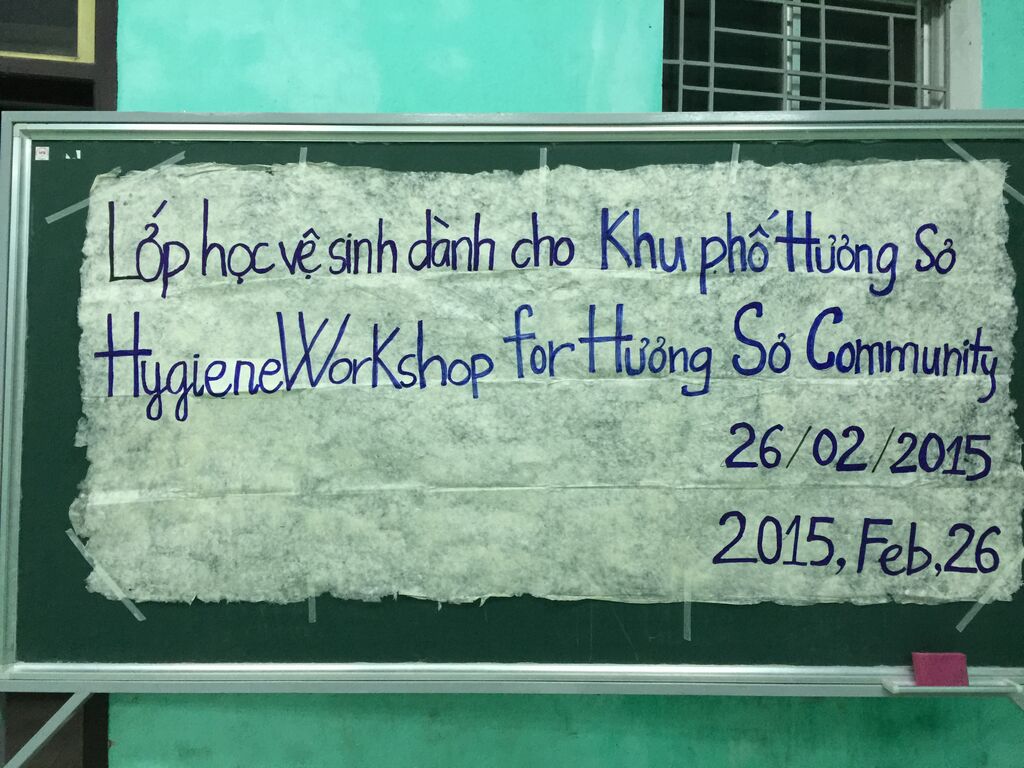 Lớp học vệ sinh dành cho Khu phố Hưởng Sở
Hygiene WorKshop for Hưởng Sở Community
26/02/2015
2015, Feb, 26